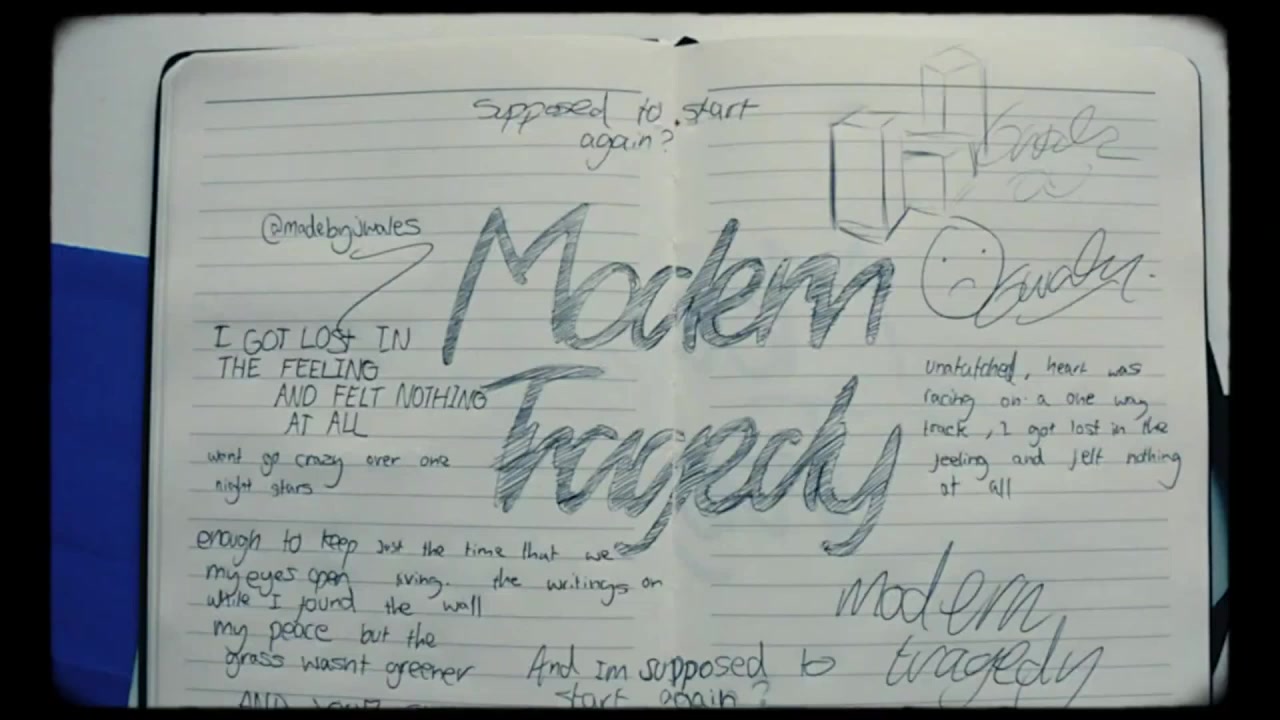 supposed to start
again?
@madebyjwales
Modern
Tragedy
I GOT LOST IN
THE FEELING
AND FELT NOTHING
AT ALL
went go crazy over one
night stars
enough to keep
my eyes open
while I found
my peace but the
grass wasnt greener
just the time that we
living. the writings on
the wall
unatatched, heart was
racing on a one way
track, I got lost in the
feeling and felt nothing
at all
modern
tragedy
And im supposed to
start again?
AND